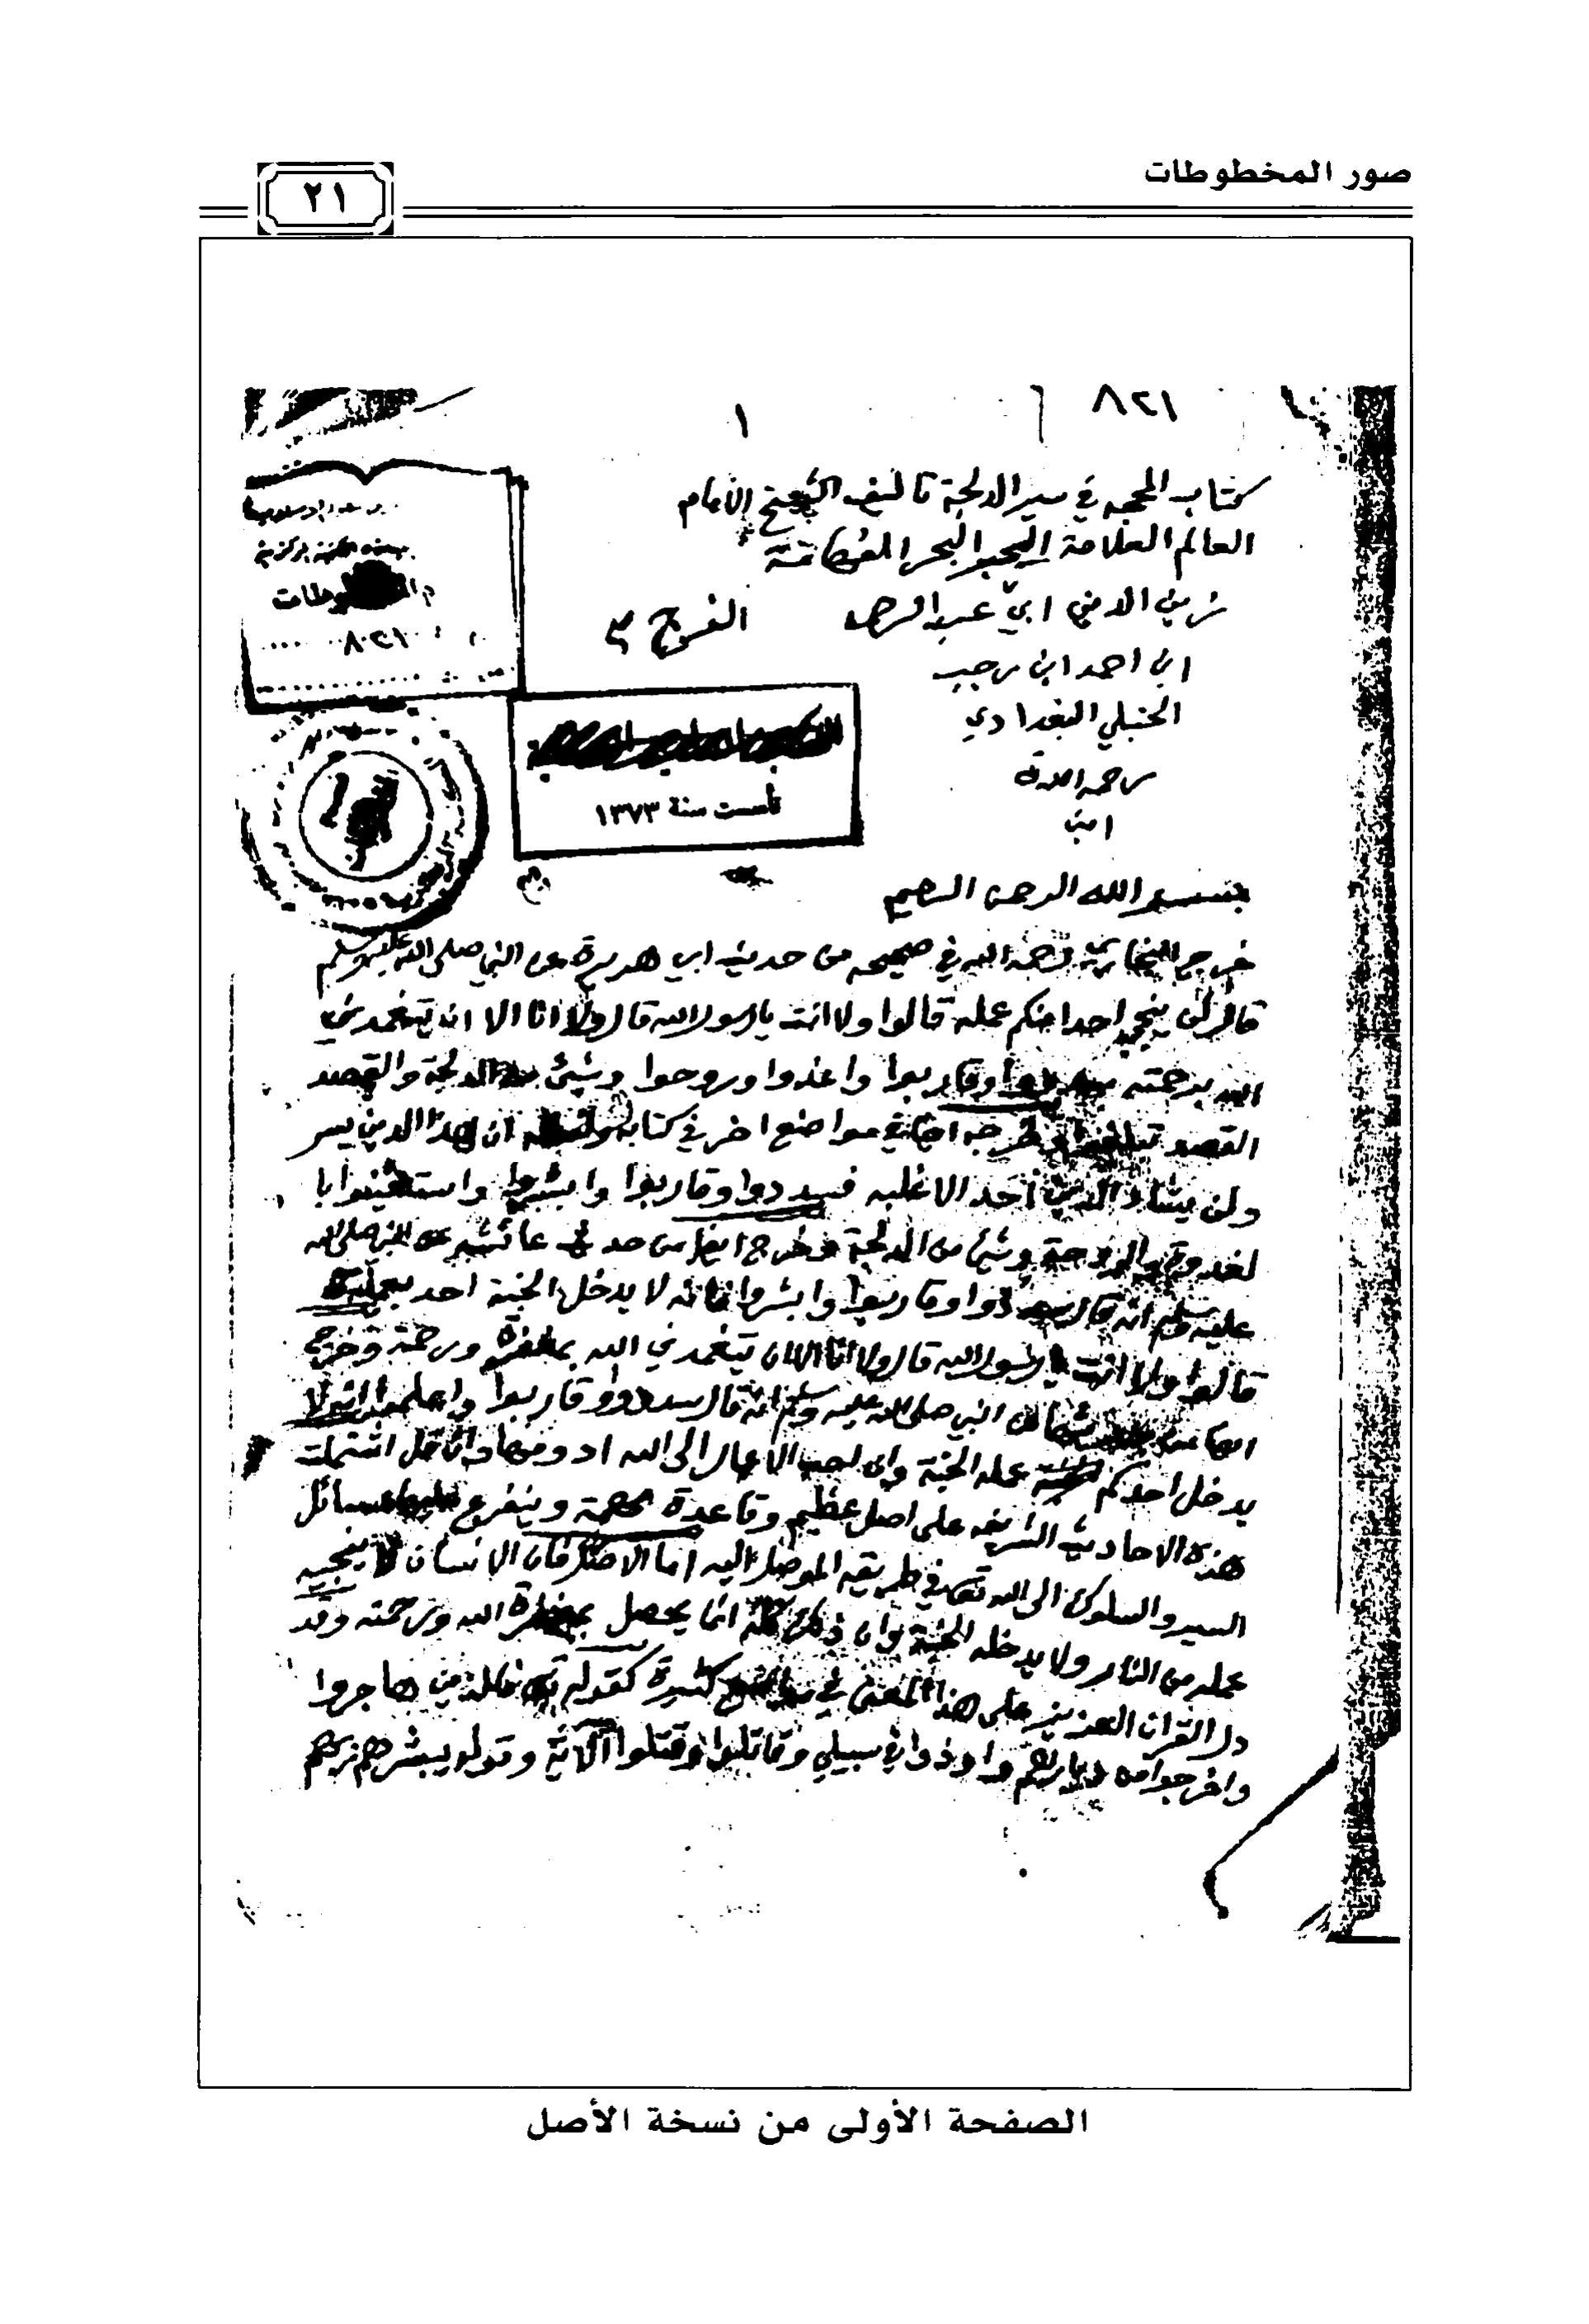 صور المخطوطات
٢١
٨٢١
١
كتاب المحجه في سير الدلجة تاليف الشيخ الامام
العالم العلامة البحر
زين الدين ابي عبد الرحمن
الفرج
ابن احمد ابن رجب
الحنبلي البغدادي
رحمه الله
امين
تأسست سنة ١٣٧٣
بسم الله الرحمن الرحيم
خرج البخاري رحمه الله في صحيحه من حديث ابي هريرة عن النبي صلى الله عليه وسلم
قال لن ينجي احدا منكم عمله قالوا ولا انت يا رسول الله قال ولا انا الا ان يتغمدني
الله برحمته وقاربوا واغدوا وروحوا وشيئ من الدلجة والقصد
القصد تبلغوا في مواضع اخر في كتابه ان هذا الدين يسر
ولن يشاد الدين احد الا غلبه فسددوا وقاربوا وابشروا واستعينوا با
لغدوة والروحة وشيئ من الدلجة وخرج ايضا من حديث عائشه عن النبي صلى الله
عليه وسلم انه قال سددوا وقاربوا وابشروا فانه لا يدخل الجنة احد بعمله
قالوا ولا انت يا رسول الله قال ولا انا الا ان يتغمدني الله بمغفرة ورحمة وخرج
ايضا عن النبي صلى الله عليه وسلم انه قال سددوا وقاربوا واعلموا انه لا
يدخل احدكم عمله الجنة وان احب الاعمال الى الله ادومها وان قل اشتملت
هذه الاحاديث الشريفه على اصل عظيم وقاعدة مهمة ويتفرع عليها مسائل
السير والسلوك الى الله في طريقه الموصل اليه اما الاصل فان الانسان لا ينجيه
عمله من النار ولا يدخله الجنة وان ذلك كله انما يحصل بمغفرة الله ورحمته وقد
دل القران العزيز على هذا المعنى في مواضع كثيرة كقوله فالذين هاجروا
واخرجوا من ديارهم واوذوا في سبيلي وقاتلوا وقتلوا الآية وقوله يبشرهم ربهم
الصفحة الأولى من نسخة الأصل